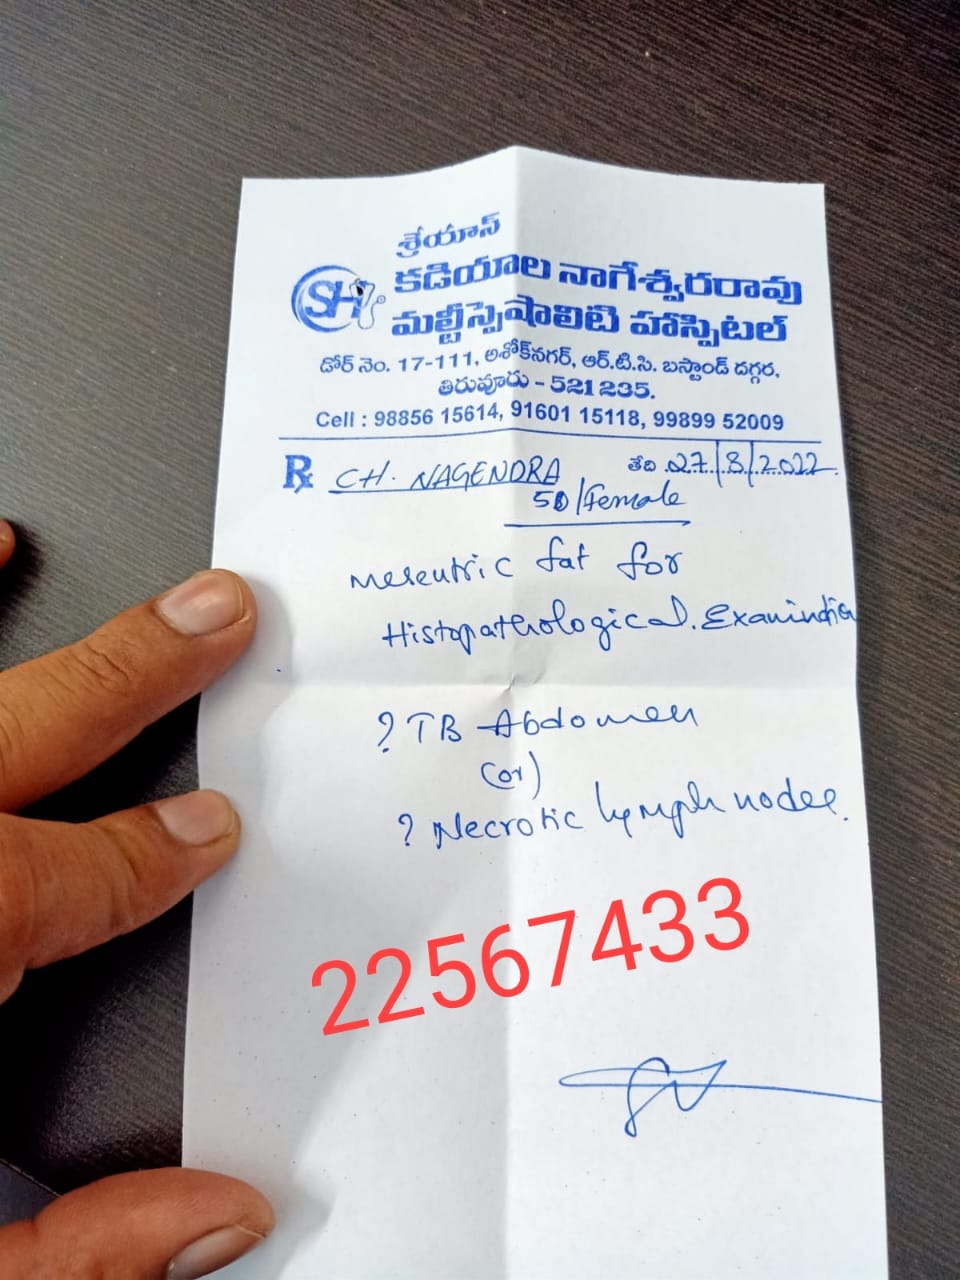 శ్రేయాస్
SH
కడియాల నాగేశ్వరరావు
మల్టీస్పెషాలిటి హాస్పిటల్
డోర్ నెం. 17-111, అశోక్‌నగర్, ఆర్.టి.సి. బస్టాండ్ దగ్గర,
తిరువూరు - 521 235.
Cell : 98856 15614, 91601 15118, 99899 52009
Rx CH. NAGENDRA తేది 27/8/2022
50/Female
Mesentric fat for
Histopathological. Examination
? TB Abdomen
(or)
? Necrotic lymph nodes.
22567433